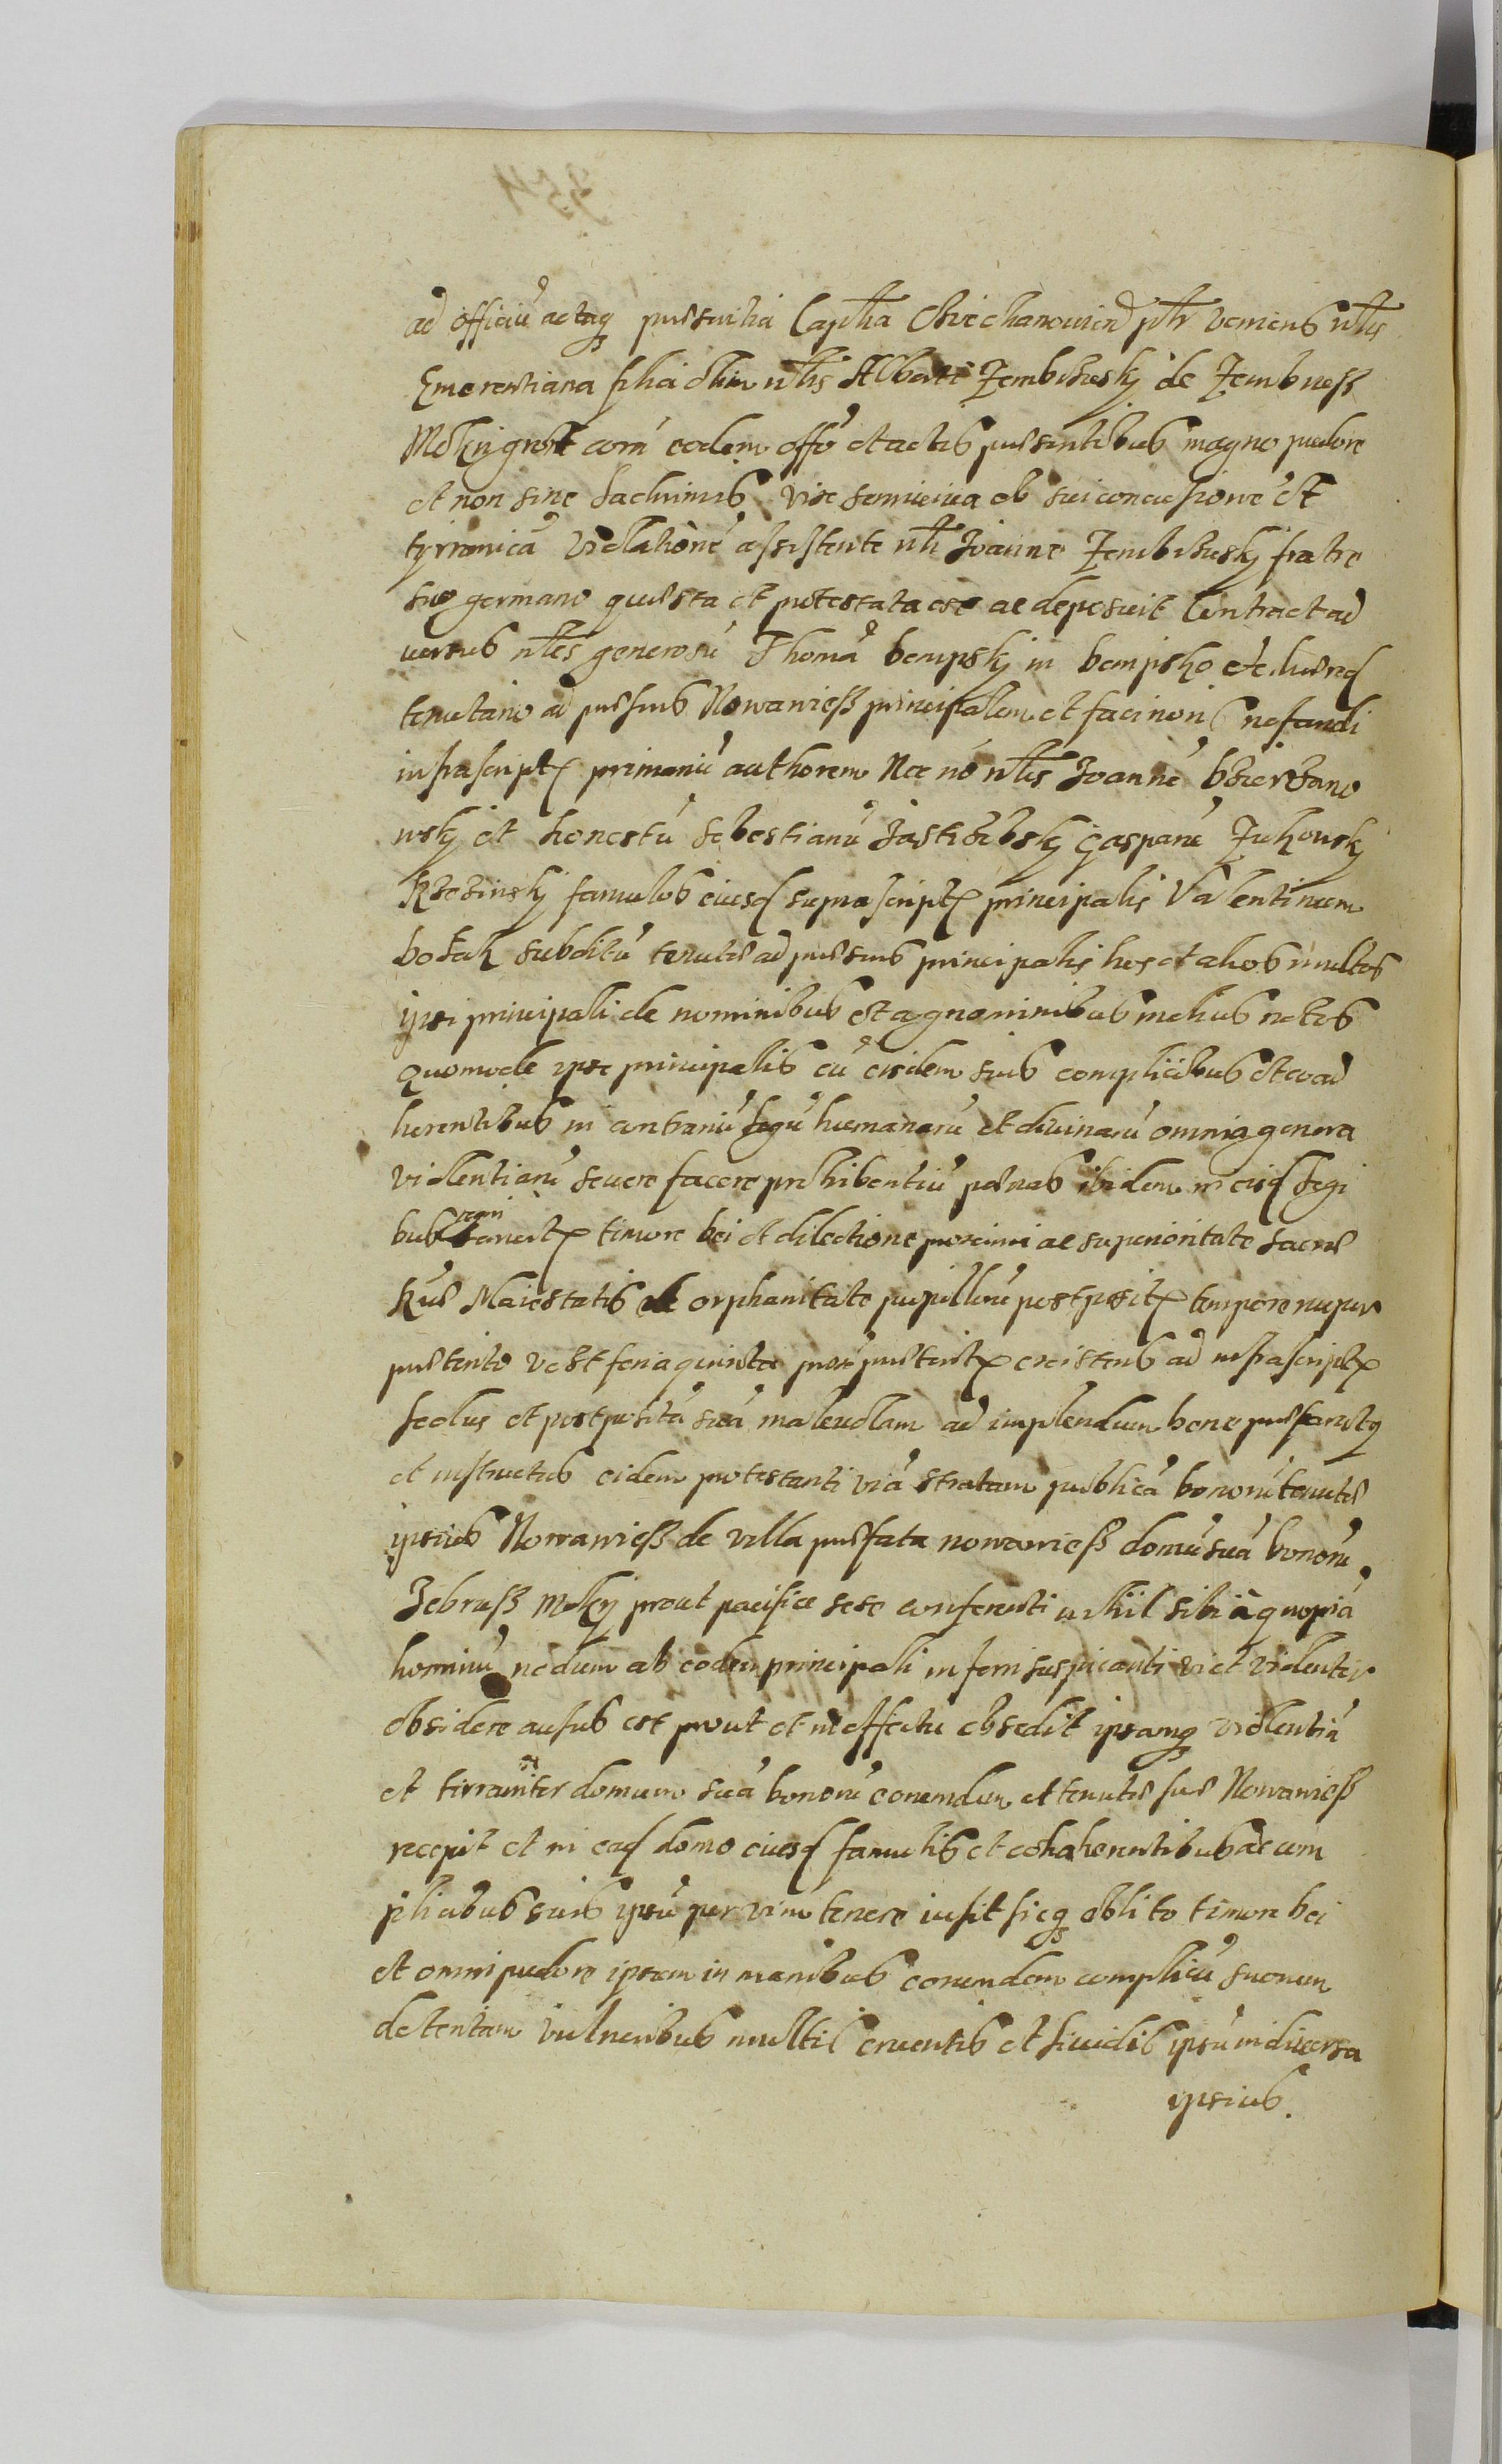 ad officiũ actaq3 pñsentia Capitlia Cziechanovien ptr veniens nblis
Emerentiana filia olim nblis Alberti Zembrzusky de Zembrusß
Mokry grõt corã eodem offõ et actis pñsentibus magno pudore
et non sine lachrimis vix semiviva ob sui concussione et
tyrranicã violationẽ assistente nbli Joanne Zembrzusky fratre
suo germano questa et protestata est ac deposuit Contra et ad
versus nbles generosũ Thomã Dempsky in Dempsko etc hered
tenutario ad pñsens Nowawiesß principalem et facinoris nefandi
infrascript primariũ authorem Nec nõ nblis Joannẽ Dzierzano
wsky et honestũ Sebestianũ Jastrzebsky Gasparũ Zukowsky
Krzesinsky famulos eiusd suprascript principalis Valentinum
Bosak subditũ tenute ad pñsens principalis hos et alios multos
ipsi principali de nominibus et agnominibus melius notos
Quomodo ipse principalis cũ eisdem suis complicibus et coad
herentibus in contrariũ legũ humanarũ et divinarũ omnia genera
violentiarũ severe facere prohibentiũ penas ibidem in eisd legi
bus regni sancit timore Dei et dilectione proximi ac superioritate Sacre
Rũe Maiestatis de orphanitate pupillorũ postposit tempore nuper
preterito vz st feria quinta prox preterit existens ad infrascript
scelus et postpositã suã malevolam ad implendum bene prefarctq
et instructus eidem protestanti viã stratam publicã bonorũ tenute
ipsius Nowawiesß de villa prefata nowawiesß domũ suã bonorũ
Zebrusß Mokry prout pacifice sese conferenti nihil sibi à quopiã
hominũ nedum ab eodem principali inferri suspicanti vi et violenter
obsidere ausus est prout et in effectu obsedit ipsamq3 violentiã
et tirraniter domum suã bonorũ eorundem et tenute sue Nowawiesß
recepit et in ead domo eiusd famulis et cohaherentibus ac com
plicibus suis ipsũ per vim tenere iusit sicq3 oblito timore Dei
et omni pudore ipsam in manibus eorundem complicũ suorum
detentam vulneribus multis cruentis et lividis ipsũ in diversa
ipsius.